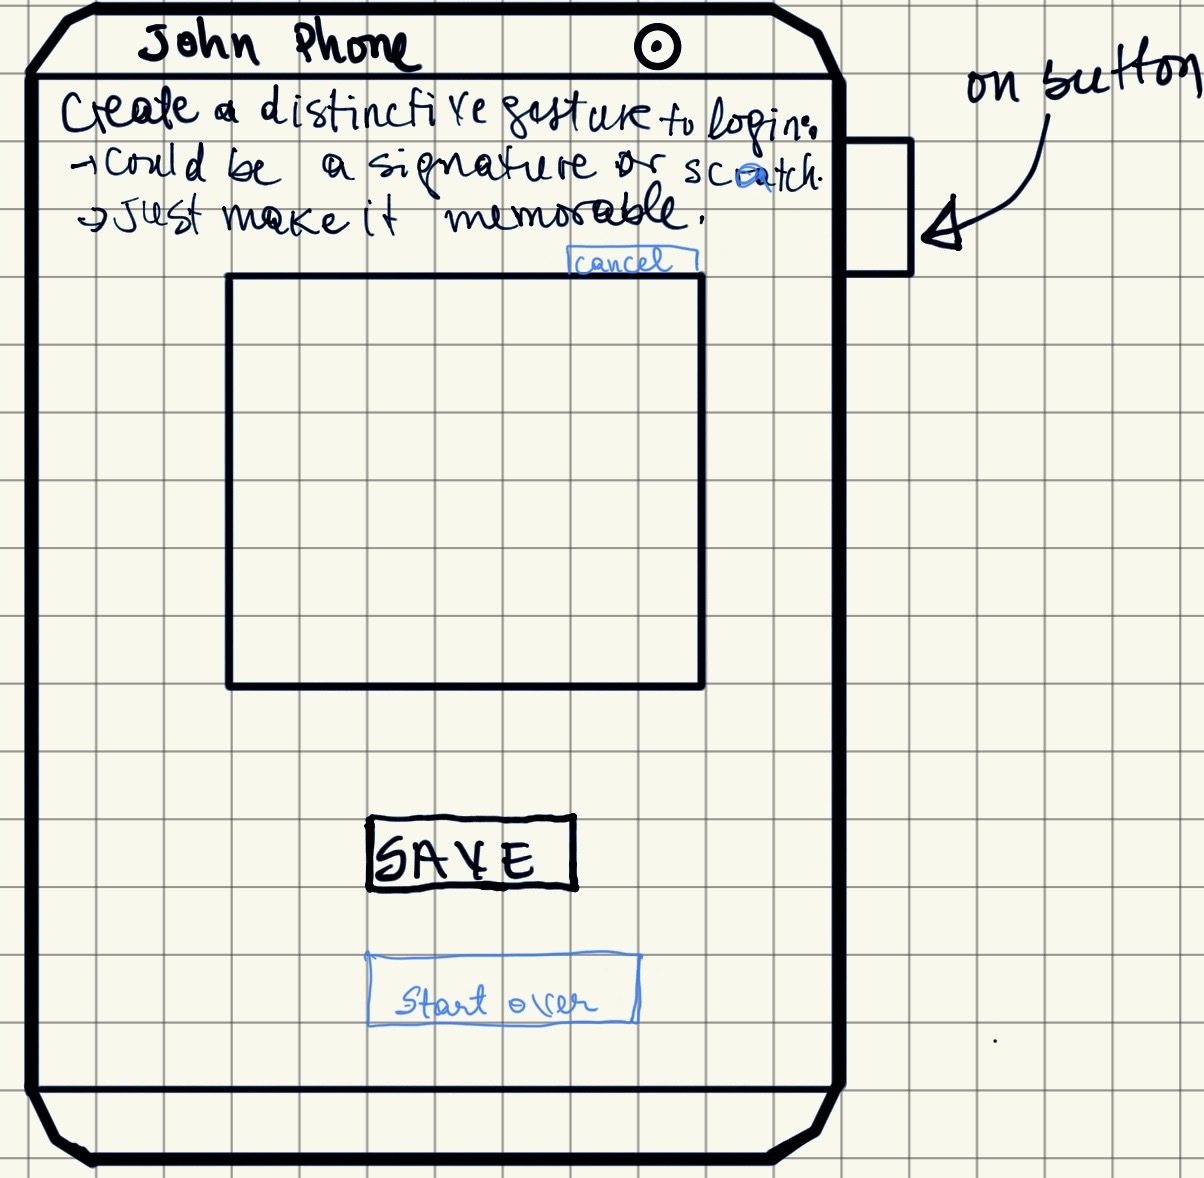 John Phone
on button
Create a distinctive gesture to login:
→ Could be a signature or scratch.
→ Just make it memorable.
cancel
SAVE
Start over